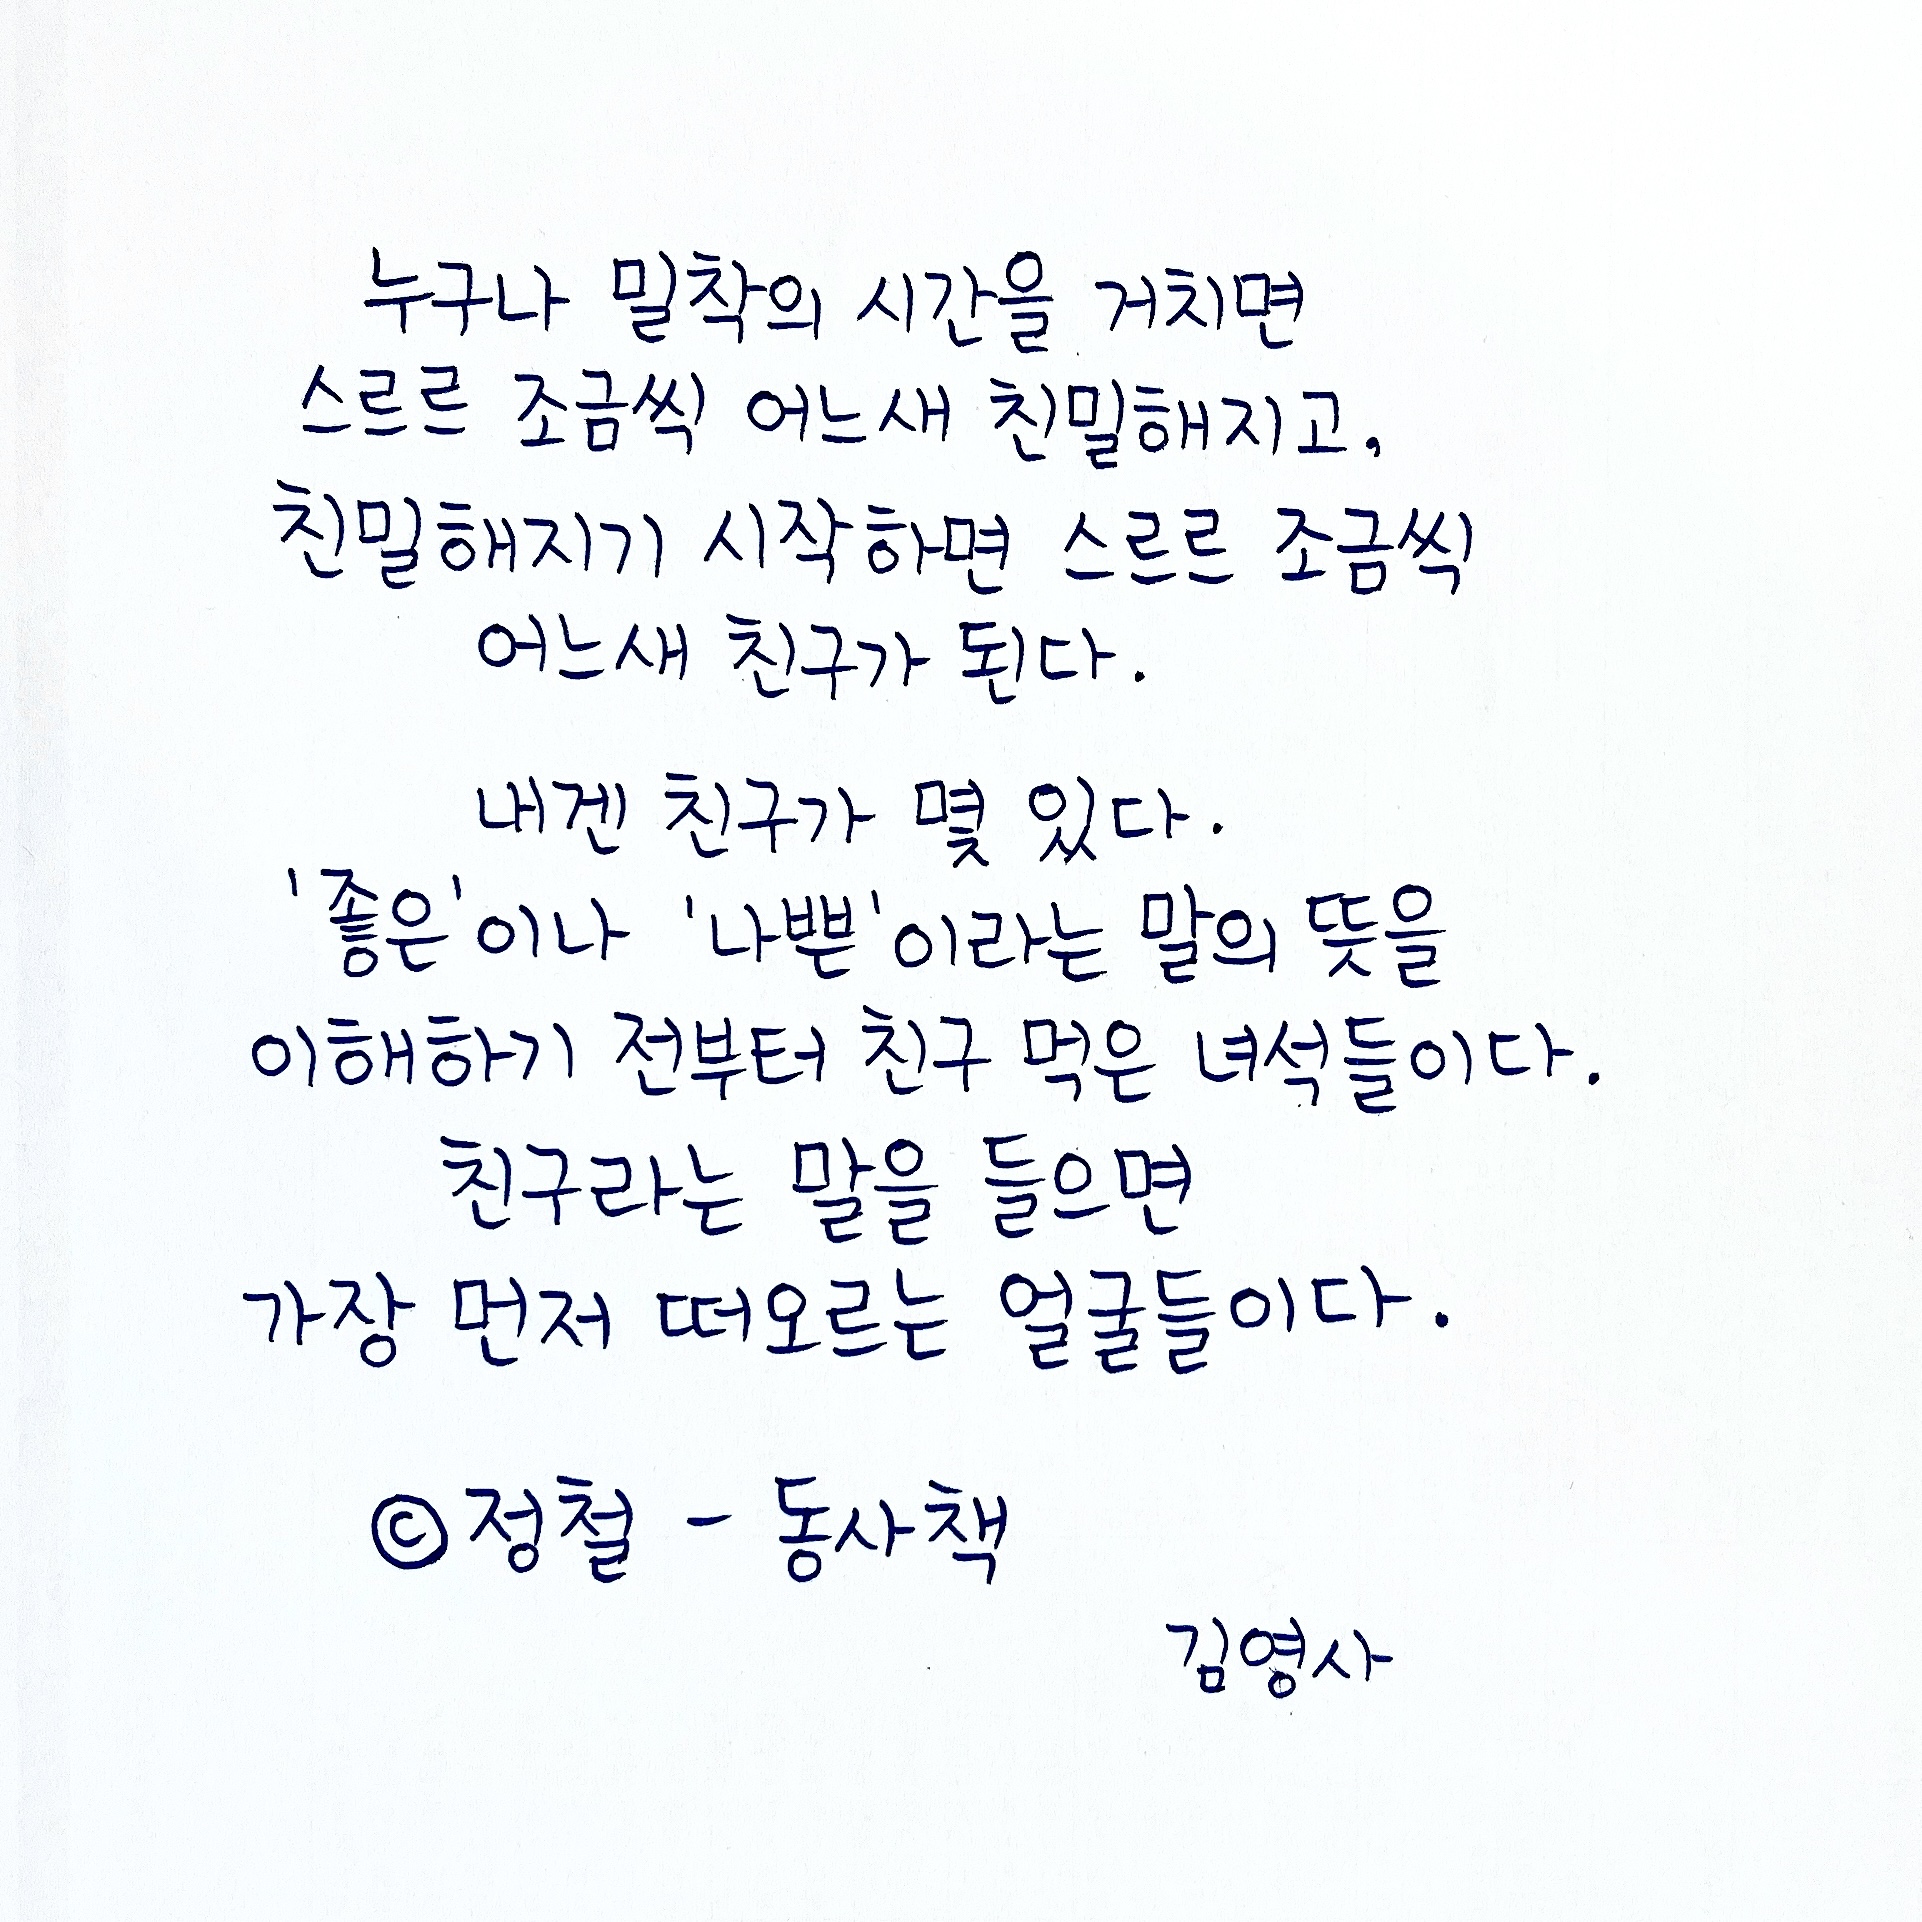 누구나 밀착의 시간을 거치면
스르르 조금씩 어느새 친밀해지고,
친밀해지기 시작하면 스르르 조금씩
어느새 친구가 된다.
내겐 친구가 몇 있다.
'좋은'이나 '나쁜'이라는 말의 뜻을
이해하기 전부터 친구 먹은 녀석들이다.
친구라는 말을 들으면
가장 먼저 떠오르는 얼굴들이다.
©정철 - 동사책
김영사